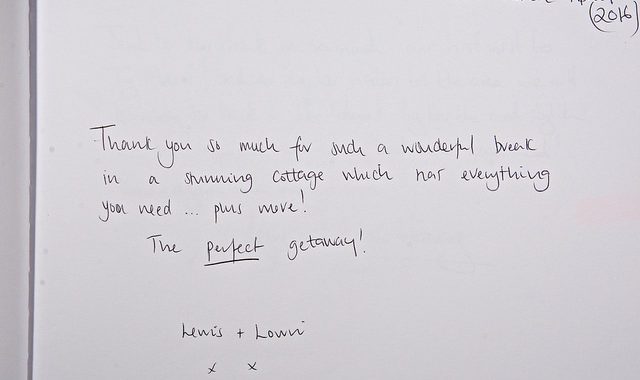 (2016)
Thank you so much for such a wonderful break
in a stunning cottage which has everything
you need ... plus more!
The perfect getaway!
Lewis + Lowri
x x